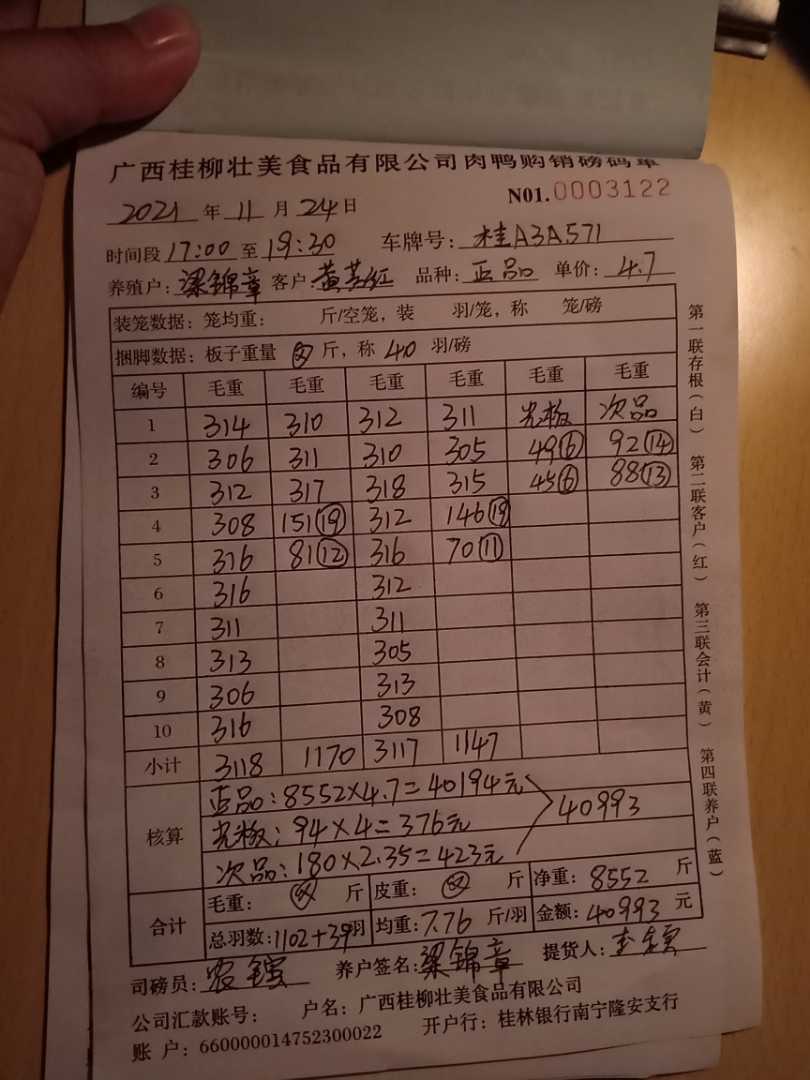 广西桂柳壮美食品有限公司肉鸭购销磅码单
N01.0003122
2021 年 11 月 24 日
时间段 17:00 至 19:30 车牌号: 桂A3A571
养殖户: 梁锦章 客户: 黄 红 品种: 正品 单价: 4.7
装笼数据: 笼均重: 斤/空笼, 装 羽/笼, 称 笼/磅
捆脚数据: 板子重量 斤, 称 40 羽/磅
编号 毛重 毛重 毛重 毛重 毛重 毛重
1 314 310 312 311 光板 次品
2 306 311 310 305 49⑥ 92⑭
3 312 317 318 315 45⑥ 88⑬
4 308 151⑲ 312 146⑲
5 316 81⑫ 316 70⑪
6 316 312
7 311 311
8 313 305
9 306 313
10 316 308
小计 3118 1170 3117 1147
核算
正品: 8552×4.7=40194元
光板: 94×4=376元
40993
次品: 180×2.35=423元
合计
毛重: 斤 皮重: 斤 净重: 8552 斤
总羽数: 1102+39羽 均重: 7.76 斤/羽 金额: 40993 元
司磅员: 养户签名: 梁锦章 提货人:
公司汇款账号: 户名: 广西桂柳壮美食品有限公司
账 户: 660000014752300022 开户行: 桂林银行南宁隆安支行
第一联存根(白) 第二联客户(红) 第三联会计(黄) 第四联养户(蓝)